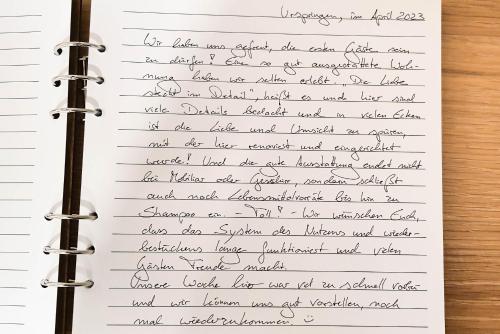 Urspringen, im April 2023
Wir haben uns gefreut, die ersten Gäste sein
zu dürfen! Eine so gut ausgestattete Woh-
nung haben wir selten erlebt. "Die Liebe
steckt im Detail", heißt es und hier sind
viele Details bedacht und in vielen Ecken
ist die Liebe und Umsicht zu spüren,
mit der hier renoviert und eingerichtet
wurde! Und die gute Ausstattung endet nicht
bei Mobiliar oder Geschirr, sondern schließt
auch noch Lebensmittelvorräte bis hin zu
Shampoo ein. - Toll! - Wir wünschen Euch,
dass das System des Nutzens und wieder-
bestückens lange funktioniert und vielen
Gästen Freude macht.
Unsere Woche hier war viel zu schnell vorbei
und wir können uns gut vorstellen, noch
mal wiederzukommen. ☺